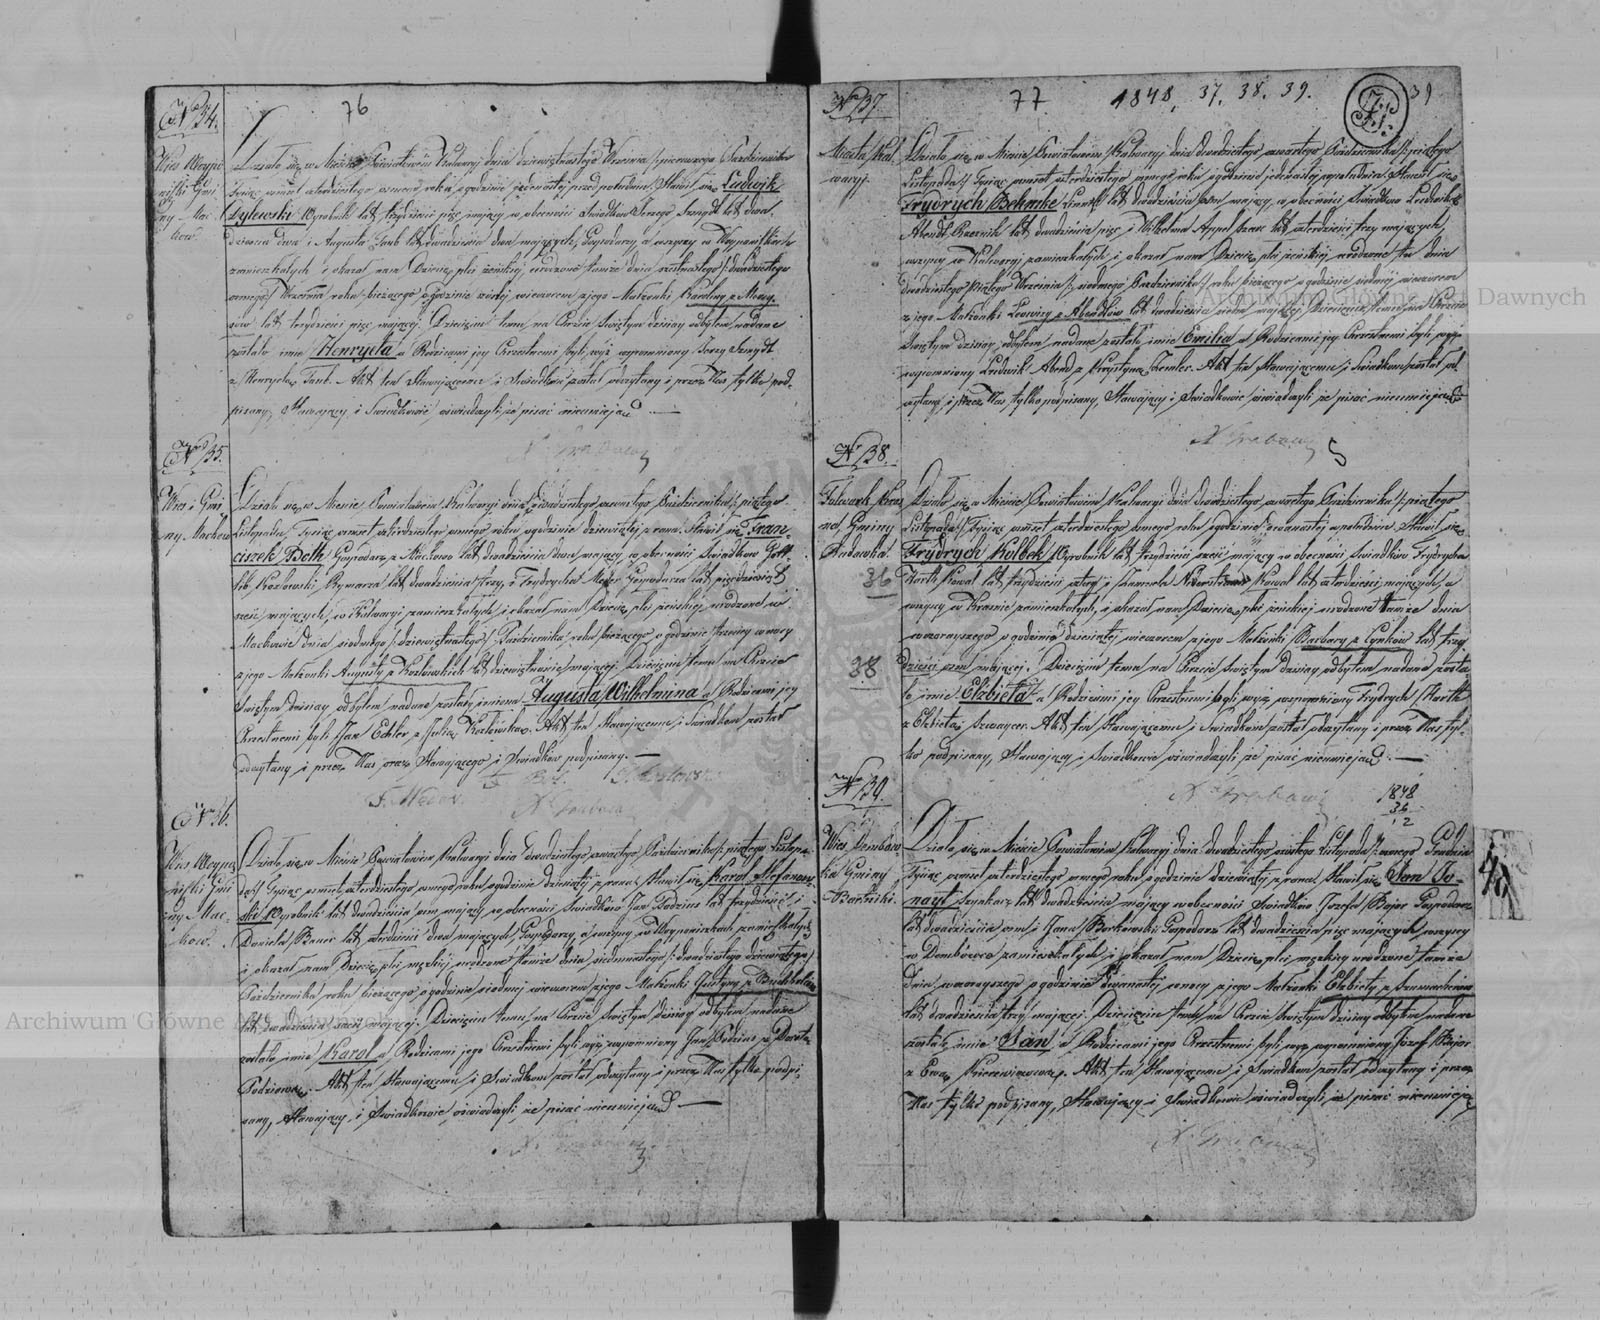 76
No 34.
Wies Woypo
nizki Gmi
ny Ma-
ków.
Działo się w Mieście Powiatowem Kalwaryi dnia dziewiętnastego Września /: pierwszego Października
Tysiąc ośmset czterdziestego ósmego roku, o godzinie jedenastej przed południem. Stawił się Ludwik
Żylewski Wyrobnik lat trzydzieści pięć mający w obecności Świadków Jerzego Szmydt lat dwa-
dzieścia dwa i Augusta Taub lat dwadzieścia dwa mających, Gospodarzy, a wszyscy w Woyponiszkach
zamieszkałych i okazał nam Dziecię płci żeńskiej urodzone tamże dnia szesnastego /: dwudziestego
ósmego :/ Września roku bieżącego o godzinie szóstej wieczorem z jego Małżonki Karoliny z
lat trzydzieści pięć mającej. Dziecięciu temu na Chrzcie Świętym dzisiay odbytem nadane
zostało imie Henryeta a Rodzicami jey Chrzestnemi byli wyż wspomniony Jerzy Szmydt
z Henryetą Taub. Akt ten Stawającemu i Świadkom został odczytany i przez Nas tylko pod-
pisany, Stawający i Świadkowie oświadczyli że pisać nieumieją
No 35.
Wies i Gmi-
ny Makow
Działo się w Mieście Powiatowem Kalwaryi dnia dwudziestego czwartego Października /: piątego
Listopada, Tysiąc ośmset czterdziestego ósmego roku o godzinie dziewiątej z rana. Stawił się Fran-
ciszek Both Gospodarz z Makowa lat dwadzieścia dwa mający, w obecności Świadków Gott-
lib Kozłowski Rymarza lat dwadzieścia trzy, i Frydrycha Gospodarza lat pięćdziesiąt
sześć mających, w Kalwaryi zamieszkałych, i okazał nam Dziecię płci żeńskiej urodzone w
Makowie dnia siódmego /: dziewiętnastego :/ Października roku bieżącego o godzinie trzeciej w nocy
z jego Małżonki Augusty z Kozłowskich lat dziewiętnaście mającej. Dziecięciu temu na Chrzcie
Świętym dzisiay odbytem nadane zostały imiona Augusta Wilhelmina a Rodzicami jey
Chrzestnemi byli Jan Echler z Julią Kozłowską. Akt ten Stawającemu i Świadkom został
odczytany i przez Nas oraz Stawającego i Świadków podpisany.
No 36.
Wies Woypo-
nizki Gmi
ny Ma-
kow.
Działo się w Mieście Powiatowem Kalwaryi dnia dwudziestego czwartego Października /: piątego Listopa-
da :/ Tysiąc ośmset czterdziestego ósmego roku o godzinie dziesiątej z rana. Stawił się Karol Stefanow-
ski Wyrobnik lat dwadzieścia ośm mający w obecności Świadków Jan Podzius lat trzydzieści i
Daniela Bauer lat czterdzieści dwa mających, Gospodarzy, a wszyscy w Woyponiszkach zamieszkałych
i okazał nam Dziecię płci męzkiej urodzone tamże dnia siedemnastego /: dwudziestego dziewiątego
Października roku bieżącego o godzinie siódmej wieczorem z jego Małżonki Justyny z Buchholców
lat dwadzieścia sześć mającej. Dziecięciu temu na Chrzcie Świętym dzisiay odbytem nadane
zostało imie Karol a Rodzicami jego Chrzestnemi byli wyż wspomniony Jan Podzius z Dorotą
Podziową. Akt ten Stawającemu i Świadkom został odczytany i przez Nas tylko podpi-
sany, Stawający i Świadkowie oświadczyli że pisać nieumieją
77. 1848, 37. 38. 39. 39
No 37.
Miasto Kal
waryi
Działo się w Mieście Powiatowem Kalwaryi dnia dwudziestego czwartego Października /: piątego
Listopada :/ Tysiąc ośmset czterdziestego ósmego roku o godzinie jedenastej z południa. Stawił się
Frydrych Behmke lat dwadzieścia ośm mający, w obecności Świadków Ludwika
Abendt lat dwadzieścia pięć i Wilhelma Appel lat czterdzieści trzy mających,
wszyscy w Kalwaryi zamieszkałych, i okazał nam Dziecię płci żeńskiej urodzone tu dnia
dwudziestego piątego Września /: siódmego Października :/ roku bieżącego o godzinie siódmej wieczorem
z jego Małżonki Louwizy z Abendtów lat dwadzieścia mającej. Dziecięciu temu na Chrzcie
Świętym dzisiay odbytem nadane zostało imie Emilia a Rodzicami jey Chrzestnemi byli wyż
wspomniony Ludwik Abend z Krystyną Akt ten Stawającemu i Świadkom został od-
czytany, i przez Nas tylko podpisany, Stawający i Świadkowie oświadczyli że pisać nieumieją
No 38.
Folwark Kras
na, Gminy
36
38
Działo się w Mieście Powiatowem Kalwaryi dnia dwudziestego czwartego Października /: piątego
Listopada :/ Tysiąc ośmset czterdziestego ósmego roku o godzinie dwunastej w południe. Stawił się
Frydrych Kolbek Wyrobnik lat trzydzieści sześć mający w obecności Świadków Frydrycha
Harth Kowal lat trzydzieści cztery i Samuela Kowal lat czterdzieści mających, a
wszyscy w Krasnie zamieszkałych, i okazał nam Dziecię płci żeńskiej urodzone tamże dnia
wczorayszego o godzinie dziesiątej wieczorem z jego Małżonki Barbary z Cynków lat trzy-
dzieści ośm mającej. Dziecięciu temu na Chrzcie Świętym dzisiay odbytem nadane zosta-
ło imie Elżbieta a Rodzicami jey Chrzestnemi byli wyż wspomniony Frydrych Harth
z Elżbietą Szwaycer. Akt ten Stawającemu i Świadkom został odczytany i przez Nas tyl-
ko podpisany, Stawający i Świadkowie oświadczyli że pisać nieumieją
1848
36
12
No 39.
Wies Dembow-
ka Gminy
Bartniki.
Działo się w Mieście Powiatowem Kalwaryi dnia dwudziestego szóstego Listopada /: ósmego Grudnia
Tysiąc ośmset czterdziestego ósmego roku o godzinie dziewiątej z rana. Stawił się Jan Jo-
nayt Szynkarz lat dwadzieścia mający w obecności Świadków Jozefa Bajor Gospodarz
lat dwadzieścia ośm i Jana Borkowski Gospodarz lat dwadzieścia pięć mających wszyscy
w Dembówce zamieszkałych i okazał nam Dziecię płci męzkiej urodzone tamże
dnia wczorayszego o godzinie dwunastej w nocy z jego Małżonki Elżbiety z
lat dwadzieścia trzy mającej. Dziecięciu temu na Chrzcie Świętym dzisiay odbytem nadane
zostało imie Jan a Rodzicami jego Chrzestnemi byli wyż wspomniony Jozef Bajor
z Ewą Akt ten Stawającemu i Świadkom został odczytany i przez
Nas tylko podpisany, Stawający i Świadkowie oświadczyli że pisać nieumieją
Archiwum Główne Akt Dawnych
Archiwum Główne Akt Dawnych